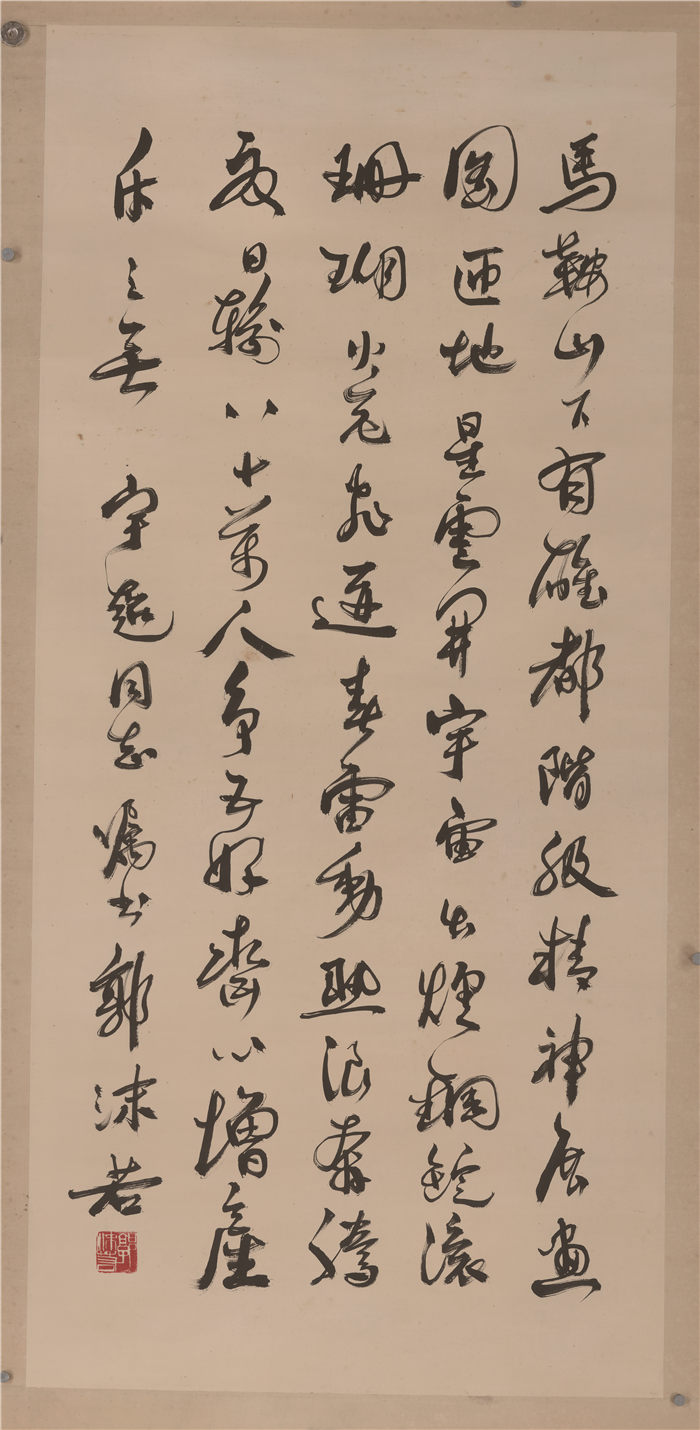 馬鞍山下有雄都階級精神展畫
圖匝地星雲開宇宙出爐鋼錠滾
珊瑚火花飛迸春雷動熱浪奔騰
夜日輸八十萬人爭五好齊心增產
之無 宇超同志嘱书 郭沫若
郭沫若